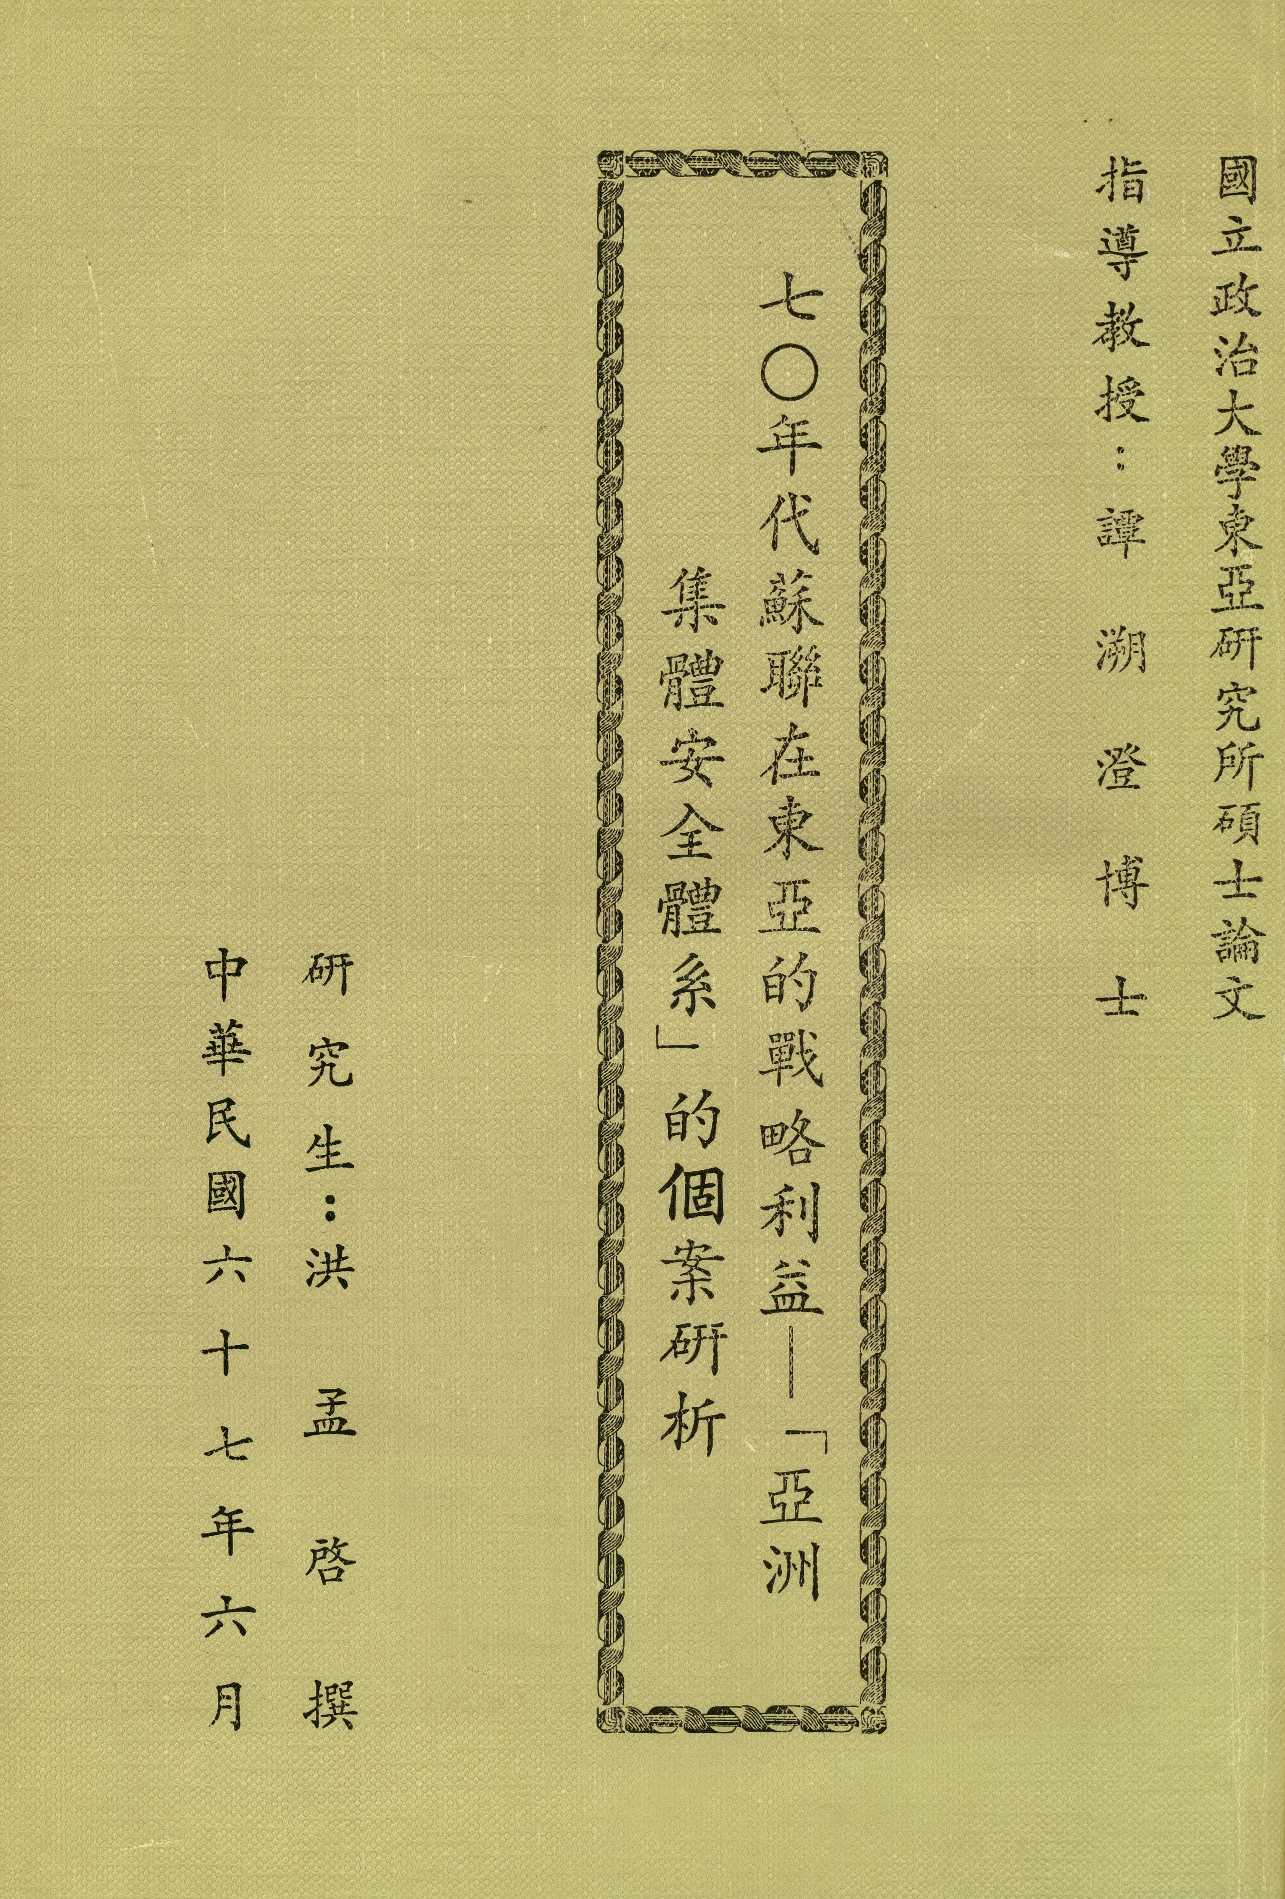 國立政治大學東亞研究所碩士論文
指導教授：譚溯澄博士
七〇年代蘇聯在東亞的戰略利益—「亞洲
集體安全體系」的個案研析
研究生：洪孟啓撰
中華民國六十七年六月